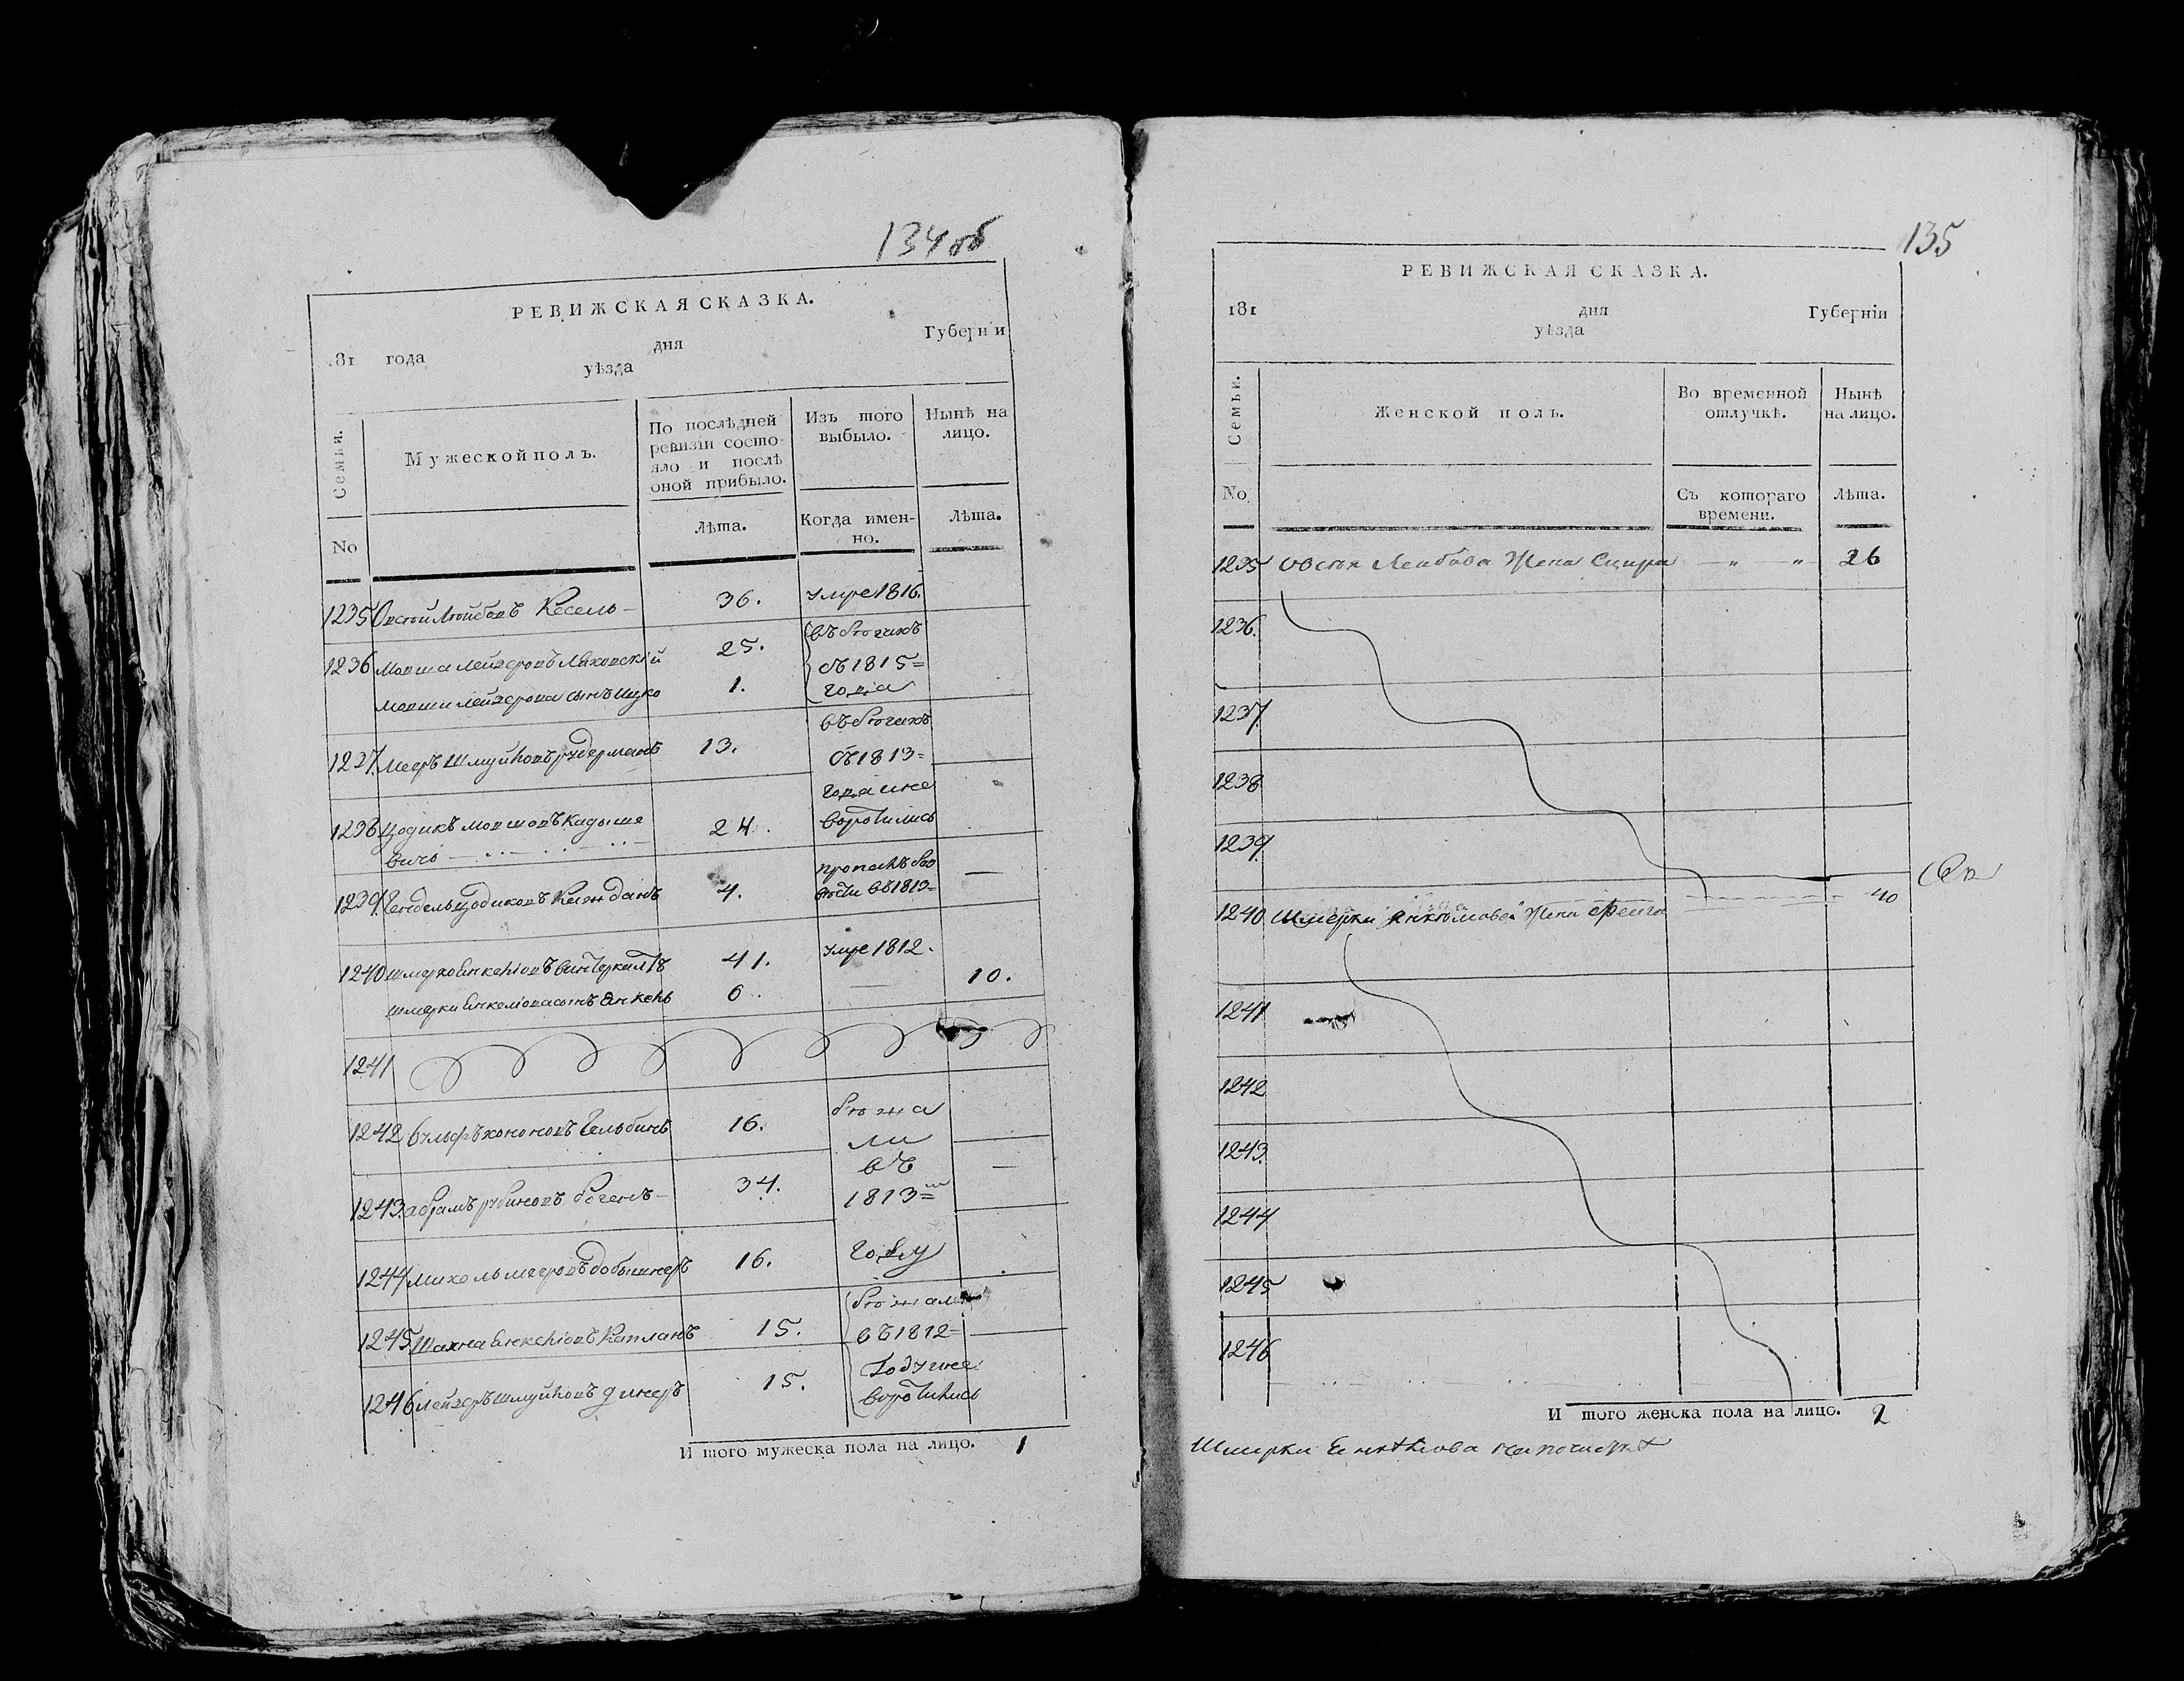 134 об
РЕВИЖСКАЯ СКАЗКА.
181 года дня Губерніи
уѣзда
Семьи.
Мужеской полъ.
По послѣдней ревизіи состояло и послѣ оной прибыло.
Изъ того выбыло.
Нынѣ на лицо.
No
Лѣта.
Когда именно.
Лѣта.
1235 Лейбовъ Кесель 36. умре 1816.
1236 Мовша Лейзеровъ Ляховскій 25. въ бѣгахъ съ 1815 = года
Мовши Лейзерова сынъ Ицко 1.
1237 Мееръ Шмуйловъ Рудерманъ 13. въ бѣгахъ съ 1813 =
1238 Цодикъ Мовшовъ Кадыше 24. года и не воротились
вичъ
1239 Цодиковъ Кейжданъ 4. пропалъ 1813 =
1240 Шмерко Енкеліовъ 41. умре 1812.
Шмерки Енкеліова сынъ Янкель 6. 10.
1241
1242 Вульфъ Хононовъ Гельбинъ 16. бѣжа
ли
въ
1243 Абрамъ Рубиновъ 34. 1813 =
1244 Михель Мееровъ 16. году
1245 Шахна Енкеліовъ Капланъ 15. бѣжали въ 1812 =
1246 Лейзеръ Шмуйловъ 15. году и не воротились
И того мужеска пола на лицо. 1
135
РЕВИЖСКАЯ СКАЗКА.
181 дня Губерніи
уѣзда
Семьи.
Женской полъ.
Во временной отлучкѣ.
Нынѣ на лицо.
No
Съ котораго времени.
Лѣта.
1235 Лейбова Жена 26
1236.
1237.
1238
1239.
1240 Шмерки Жена Фейга 40
1241
1242
1243.
1244
1245
1246
И того женска пола на лицо. 2
Шмерки